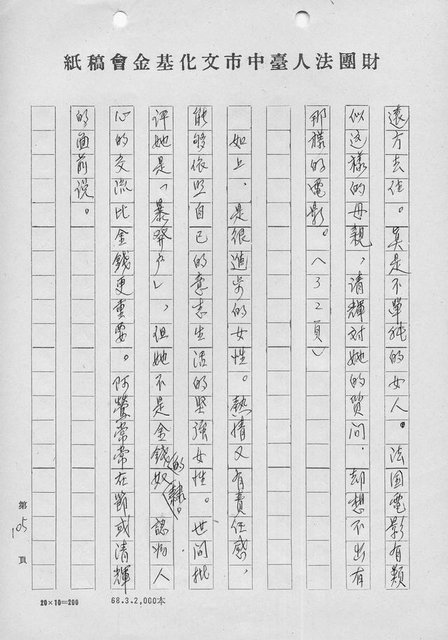 財團法人臺中市文化基金會稿紙
遠方去住。真是不單純的女人。法国電影有類
似这樣的母親，请輝对她的質问，却想不出有
那樣的電影。（３２頁）
如上，是很進步的女性。熱情又有責任感，
能够依照自己的意志生活的坚強女性。世间批
评她是「暴發户」，但她不是金錢的奴隸。認为人
心的交流比金錢更重要。阿鶯常常在節或清輝
的面前说。
第 15 頁
20×10=200
68.3.2,000本